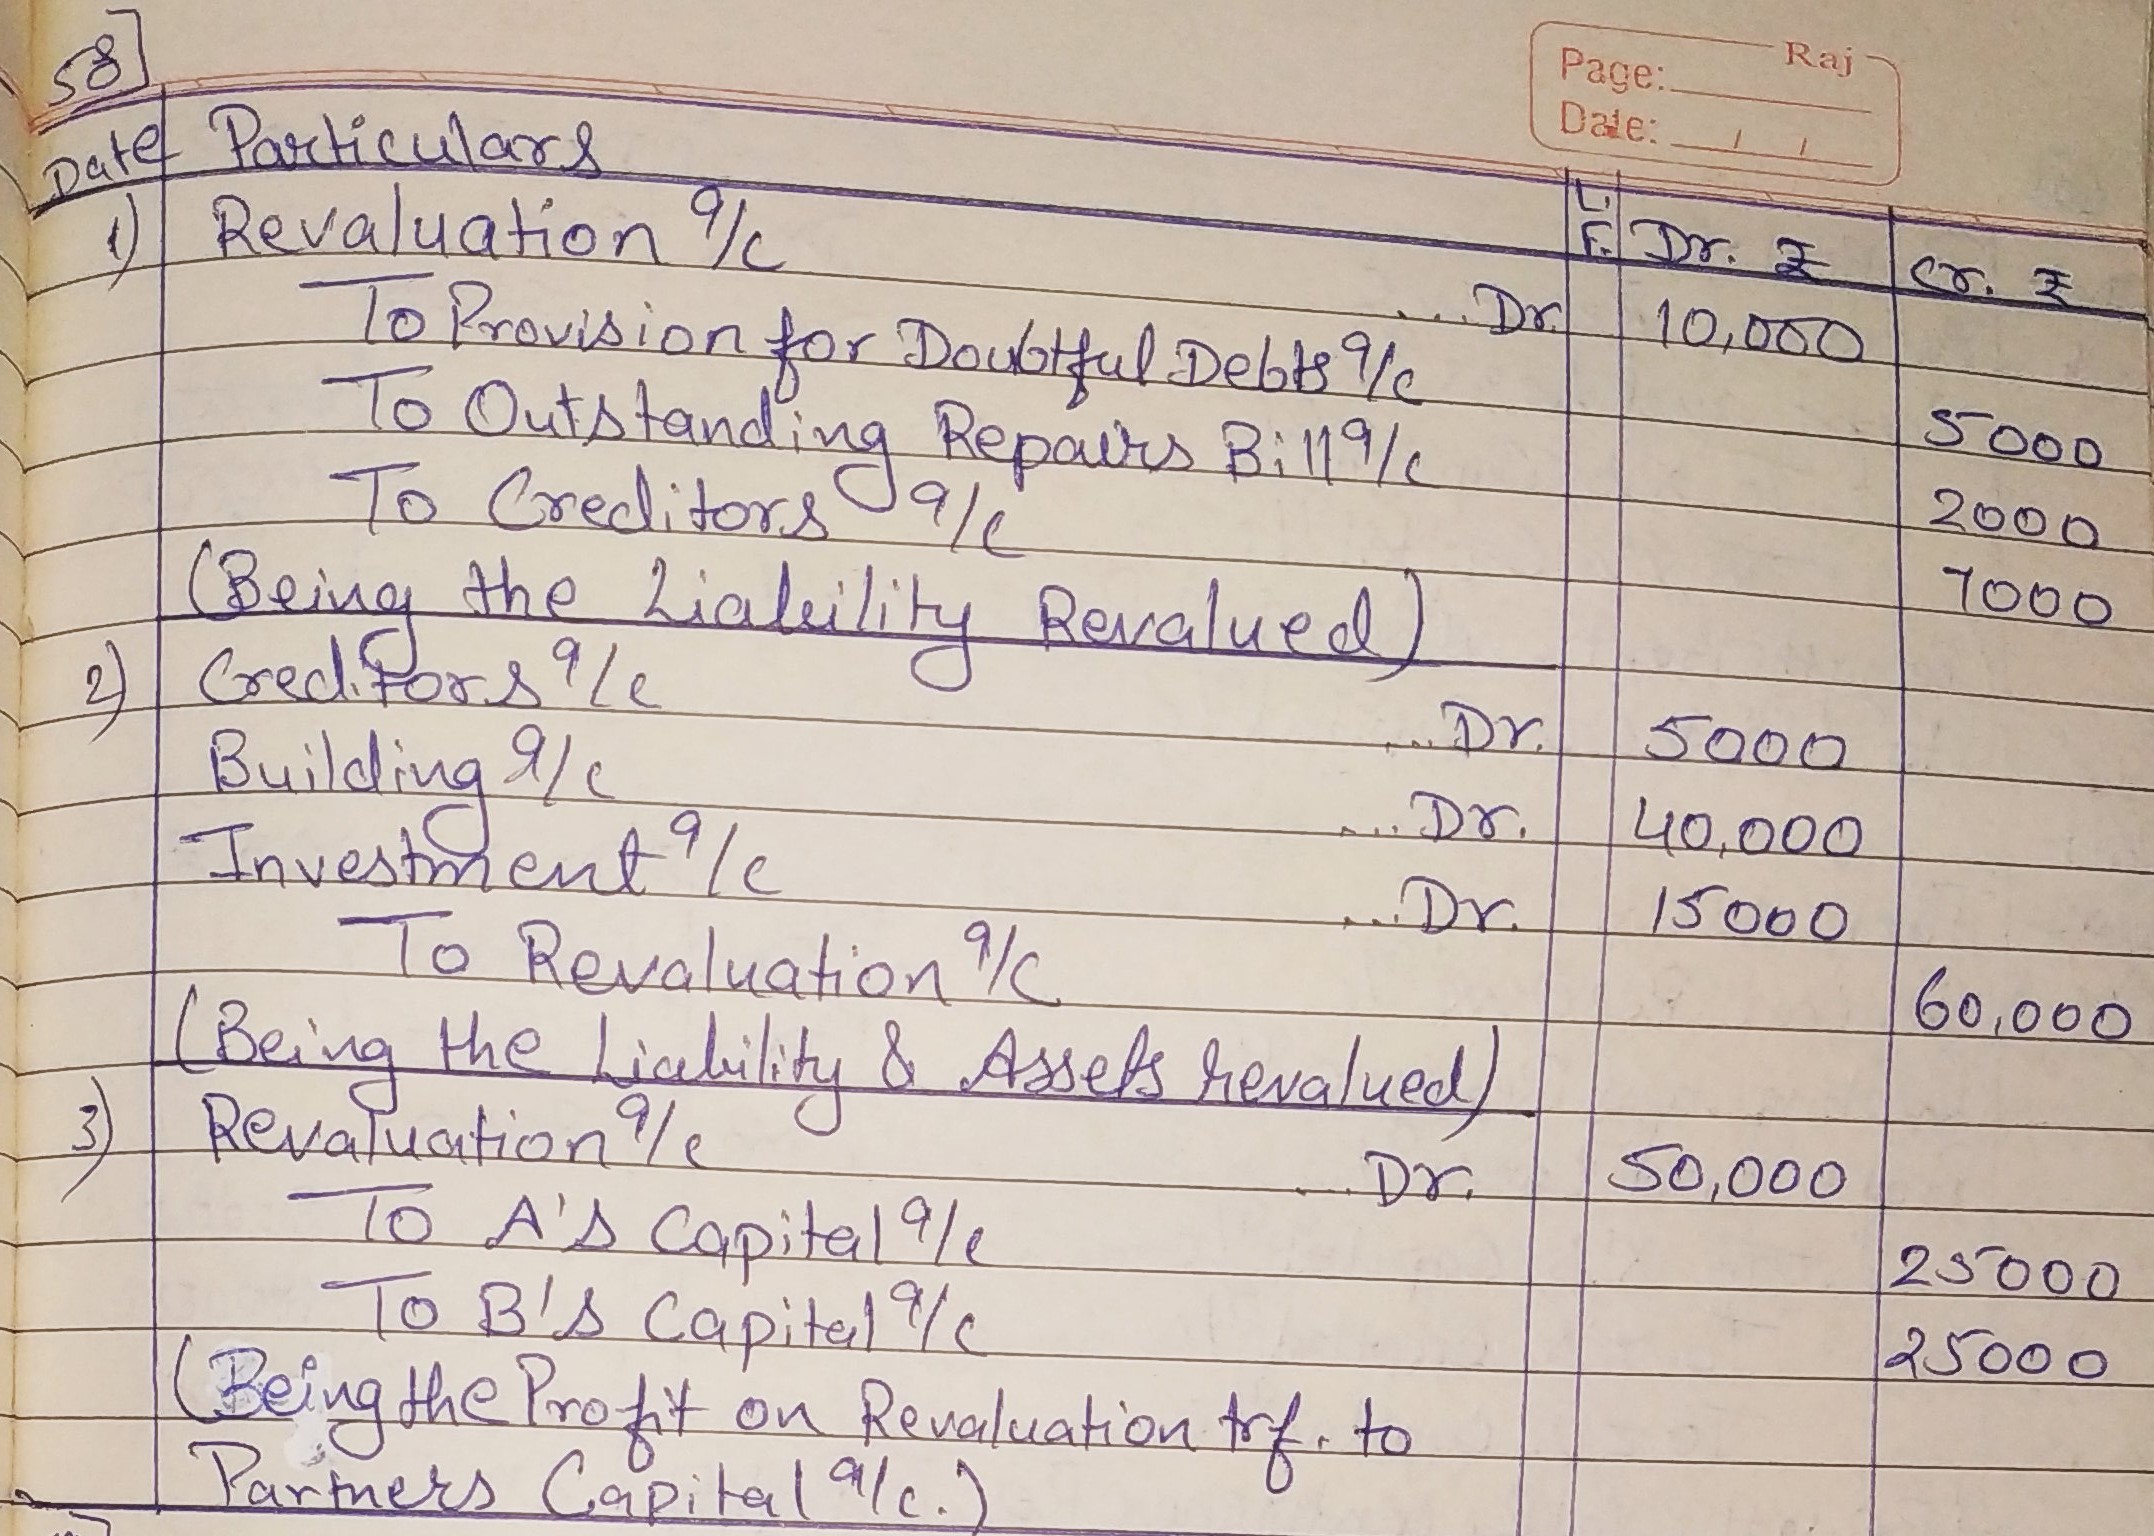 58]
Page: Raj
Date: / /
Date Particulars L.F. Dr. ₹ Cr. ₹
1) Revaluation a/c ... Dr. 10,000
To Provision for Doubtful Debts a/c 5000
To Outstanding Repairs Bill a/c 2000
To Creditors a/c 7000
(Being the Liability Revalued)
2) Creditors a/c ... Dr. 5000
Building a/c ... Dr. 40,000
Investment a/c ... Dr. 15000
To Revaluation a/c 60,000
(Being the Liability & Assets revalued)
3) Revaluation a/c ... Dr. 50,000
To A's Capital a/c 25000
To B's Capital a/c 25000
(Being the Profit on Revaluation trf. to
Partners Capital a/c.)